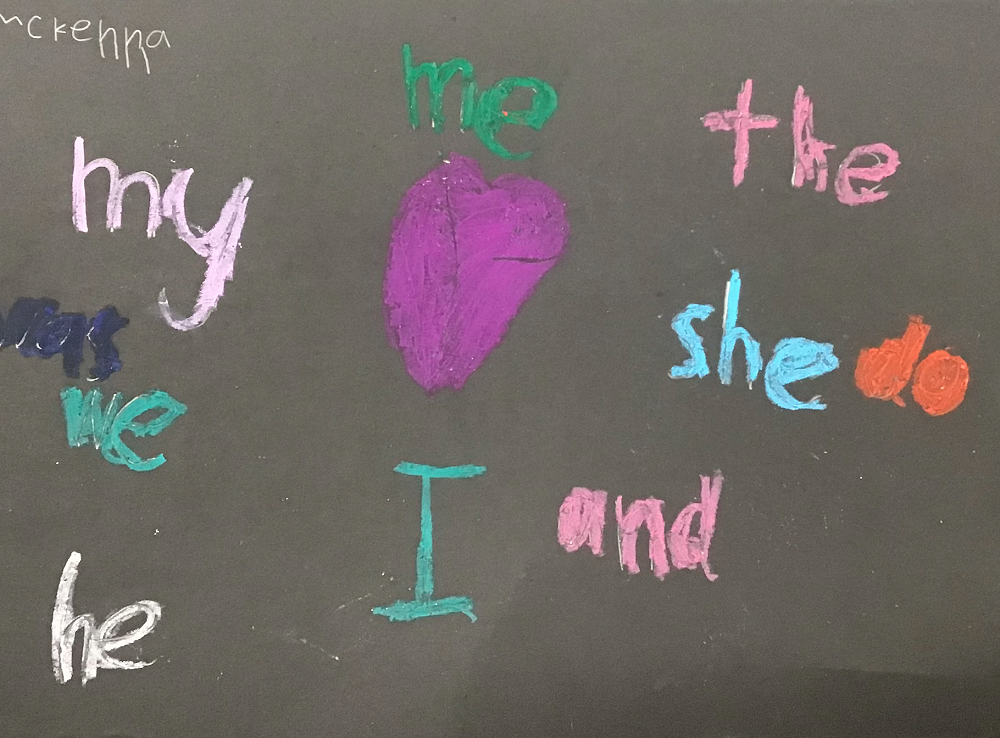 mckenna
me
the
my
was
she do
we
I
and
he